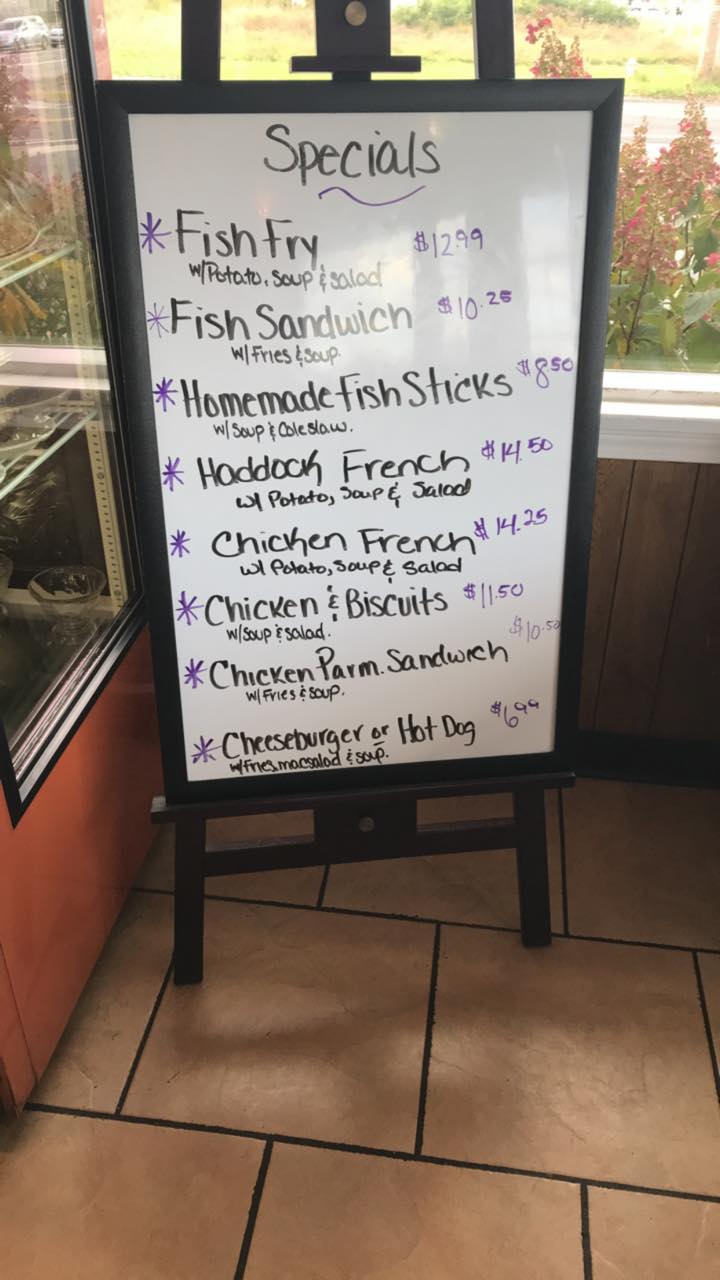 Specials
* Fish Fry $12.99
w/Potato, Soup & Salad
* Fish Sandwich $10.25
w/ Fries & Soup.
* Homemade Fish Sticks $8.50
w/ Soup & Coleslaw.
* Haddock French $14.50
w/ Potato, Soup & Salad
* Chicken French $14.25
w/ Potato, Soup & Salad
* Chicken & Biscuits $11.50
w/Soup & Salad.
* Chicken Parm. Sandwich $10.50
w/ Fries & Soup.
* Cheeseburger or Hot Dog $6.99
w/Fries, macsalad & soup.